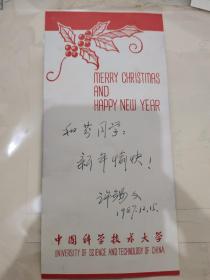 MERRY CHRISTMAS
AND
HAPPY NEW YEAR
同学:
新年愉快!
1987.12.15.
中国科学技术大学
UNIVERSITY OF SCIENCE AND TECHNOLOGY OF CHINA